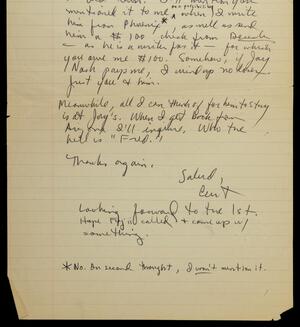 mentioned it to me when I write
him from Phoenix* as well as send
him a $100 check from December
— as he is a writer for it — for which
you owe me $100. Somehow, if Jay
Nash pays me, I wind up no
just you & him.
Meanwhile, all I can think of for
is at Jay's. When I get back from
Arizona I'll inquire. Who the
hell is "Fred."
Thanks again.
Salud,
Curt
Looking forward to the 1st.
Hope is called & came up w/
something.
*No. On second thought, I won't mention it.